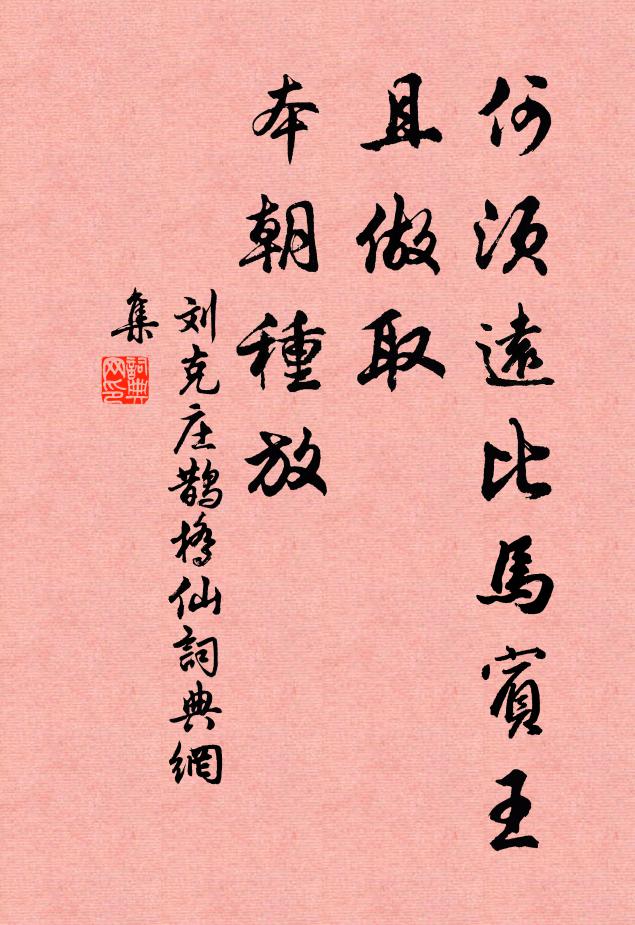 何須遠比馬賓王
且做取
本朝種放
刘克庄鵲橋仙詞典網
集
詞典
网印